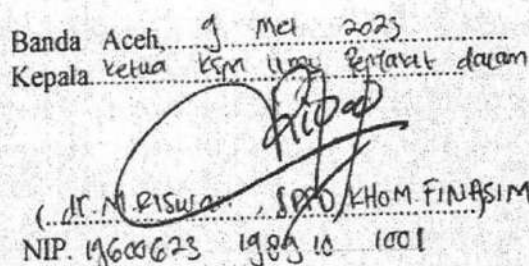 Banda Aceh, 9 Mei 2023
Kepala Ketua KSM Ilmu Penyakit dalam
( dr. M. Riswan, SPPD, KHOM. FINASIM
NIP. 19600623 1989 10 1001